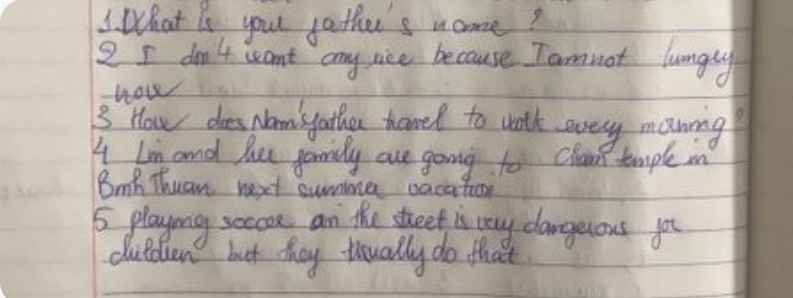 1. What is your father's name ?
2 I don't want any rice because I am not hungry
now
3 How does Nam's father travel to work every morning?
4 Lin and her family are going to Cham temple in
Binh Thuan next summer vacation
5 playing soccer on the street is very dangerous for
children but they usually do that.